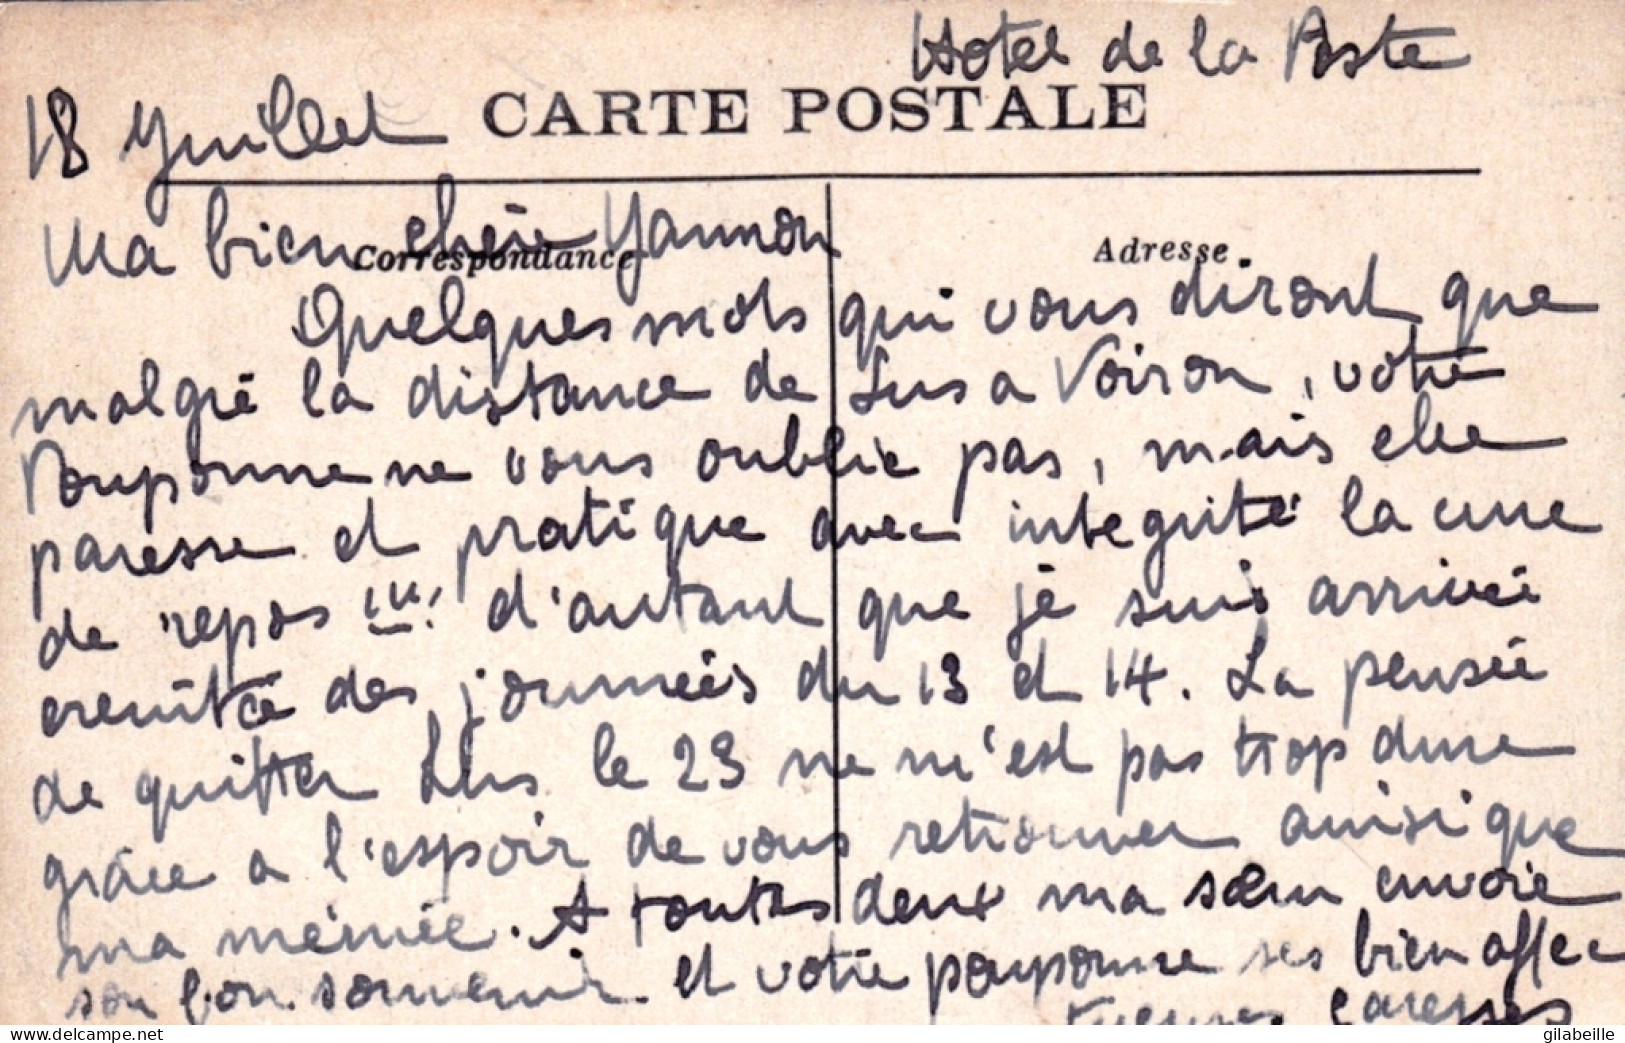 Hotel de la Poste
18 Juillet
CARTE POSTALE
Ma bien chère Yamnon
Correspondance
Adresse
Quelques mots qui vous diront que
malgré la distance de Lus a Voiron, votre
Pouponne ne vous oublie pas, mais elle
paresse et pratique avec intégrité la cure
de repos !!! d'autant que je suis arrivée
ereintée des journées du 13 et 14. La pensée
de quitter Lus le 23 ne m'est pas trop dure
grâce a l'espoir de vous retrouver ainsi que
ma mémée. A toutes deux ma sœur envoie
son bon souvenir et votre pouponne ses bien affec
tueuses caresses
www.delcampe.net
gilabeille